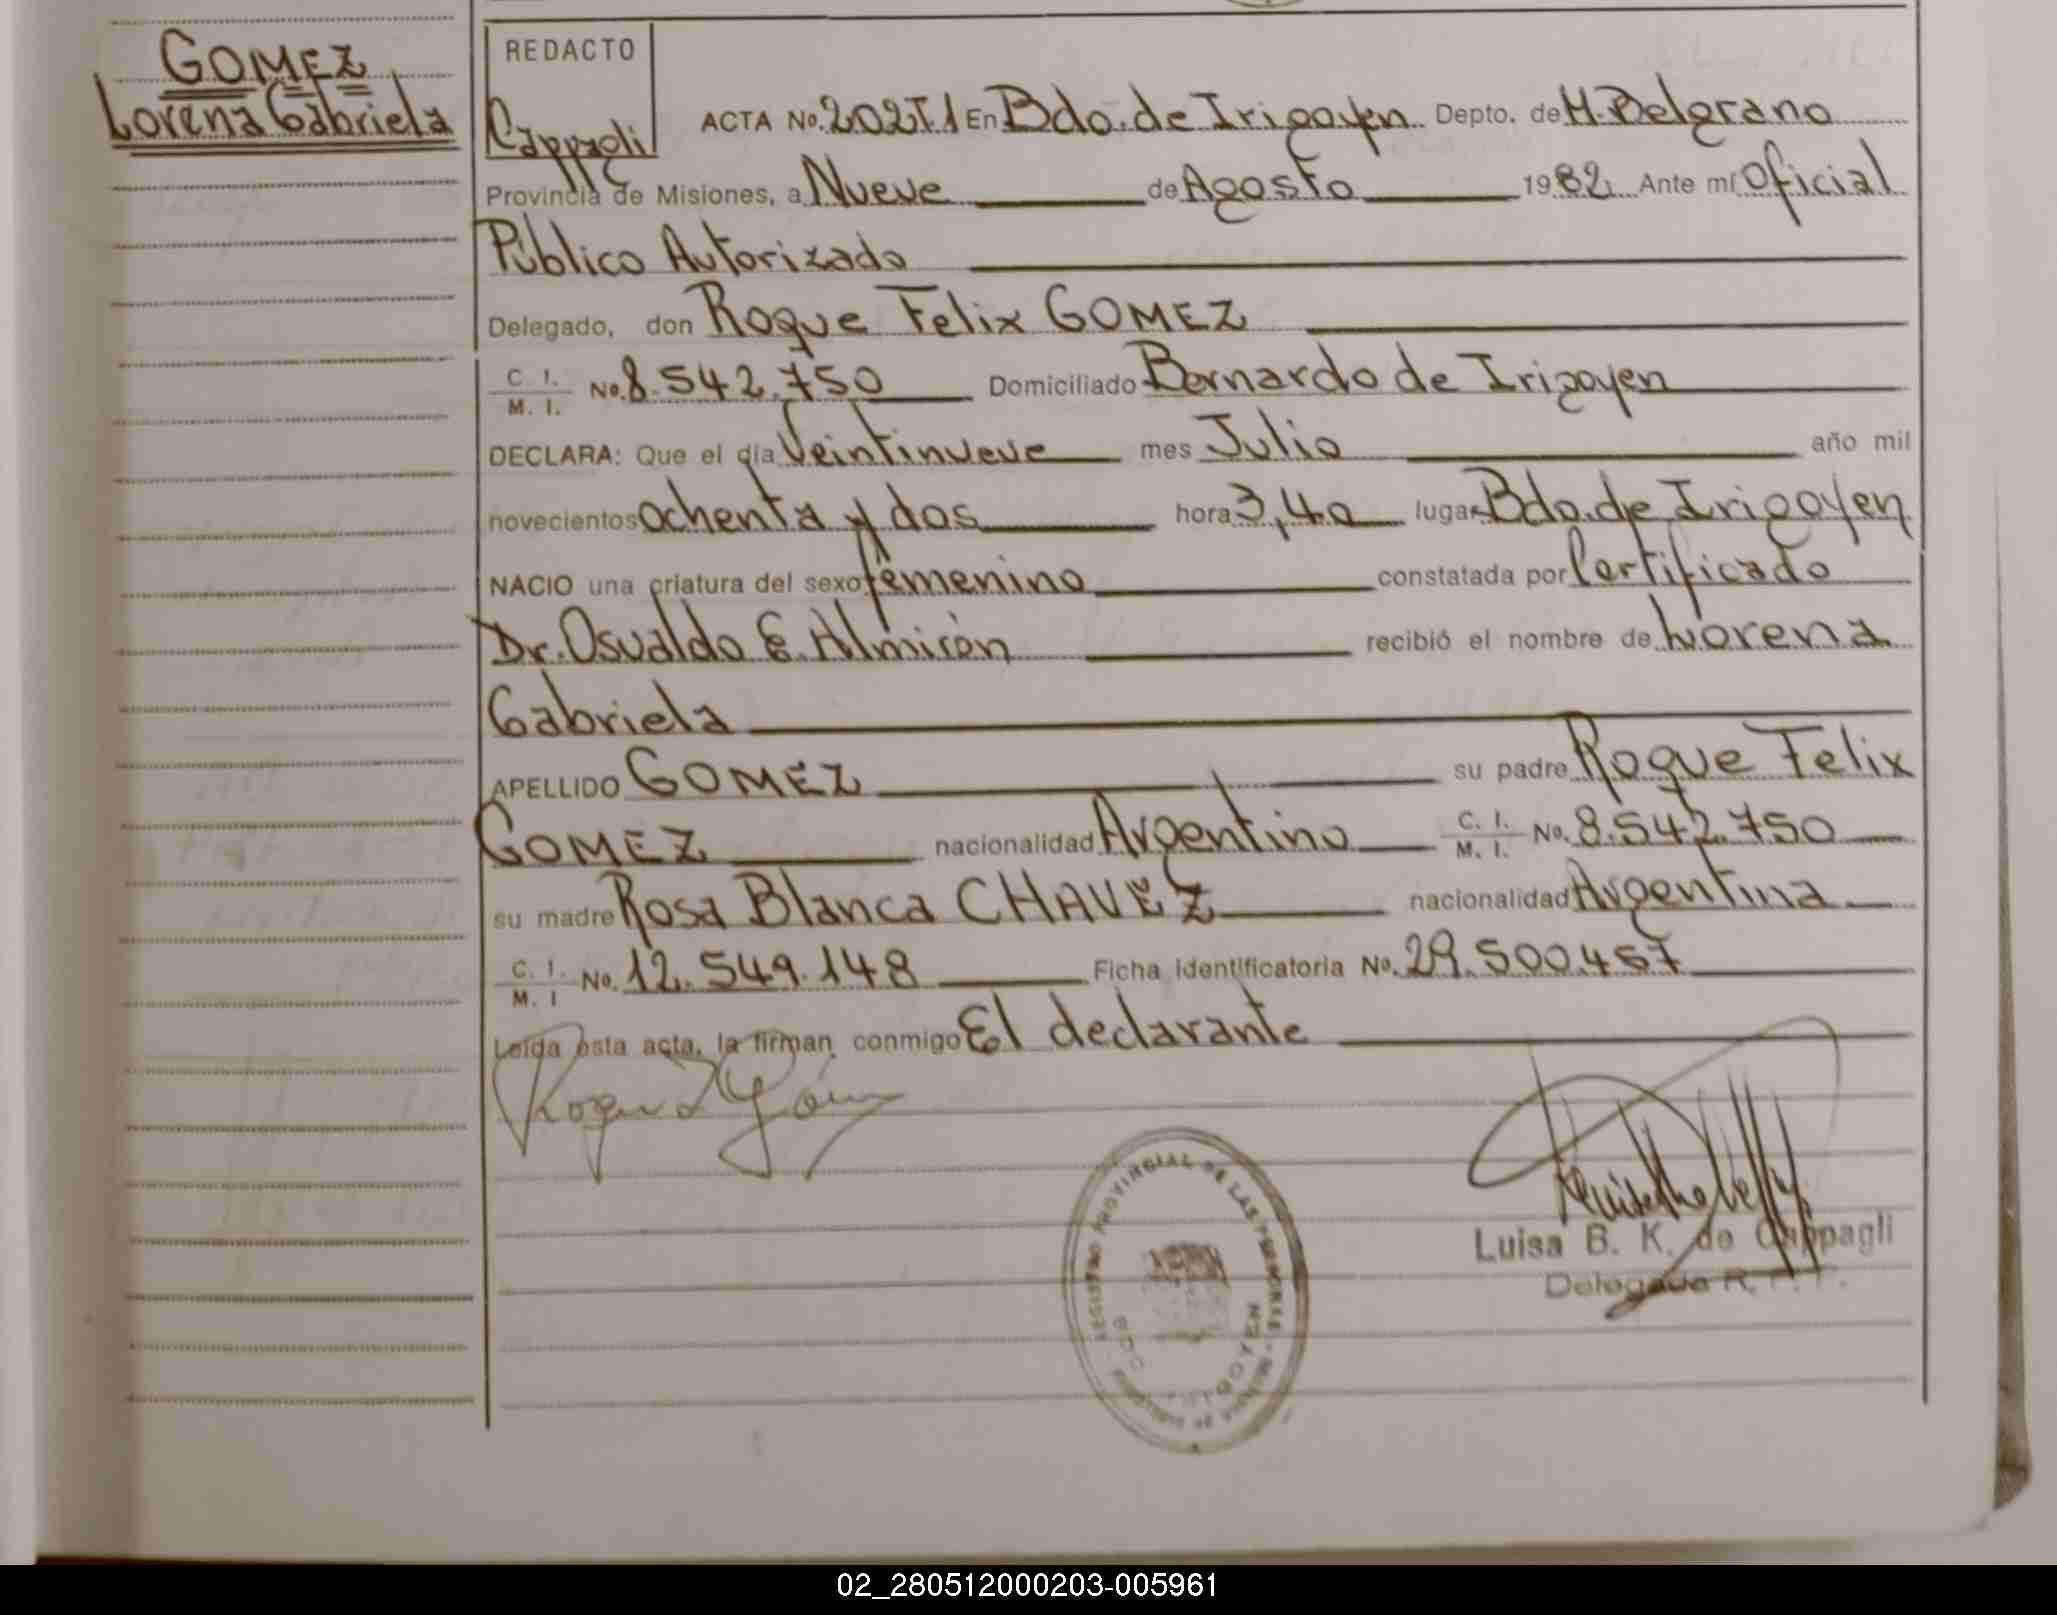 GOMEZ
Lorena Gabriela
REDACTO
Cappagli
ACTA No. 202T1 En Bdo. de Irigoyen Depto. de M. Belgrano
Provincia de Misiones, a Nueve de Agosto 1982 Ante mí Oficial
Público Autorizado
Delegado, don Roque Felix GOMEZ
C. I. M. I. No. 8.542.750 Domiciliado Bernardo de Irigoyen
DECLARA: Que el día Veintinueve mes Julio año mil
novecientos ochenta y dos hora 3,40 lugar Bdo. de Irigoyen
NACIO una criatura del sexo femenino constatada por Certificado
Dr. Osvaldo E. Almirón recibió el nombre de Lorena
Gabriela
APELLIDO GOMEZ su padre Roque Felix
GOMEZ nacionalidad Argentino C. I. M. I. No. 8.542.750
su madre Rosa Blanca CHAVEZ nacionalidad Argentina
C. I. M. I No. 12.549.148 Ficha Identificatoria No. 29.500.457
Leída esta acta, la firman conmigo El declarante
REGISTRO PROVINCIAL DE LAS PERSONAS
BDO. IRIGOYEN
Luisa B. K. de Cappagli
Delegada R. P. P.
02_280512000203-005961